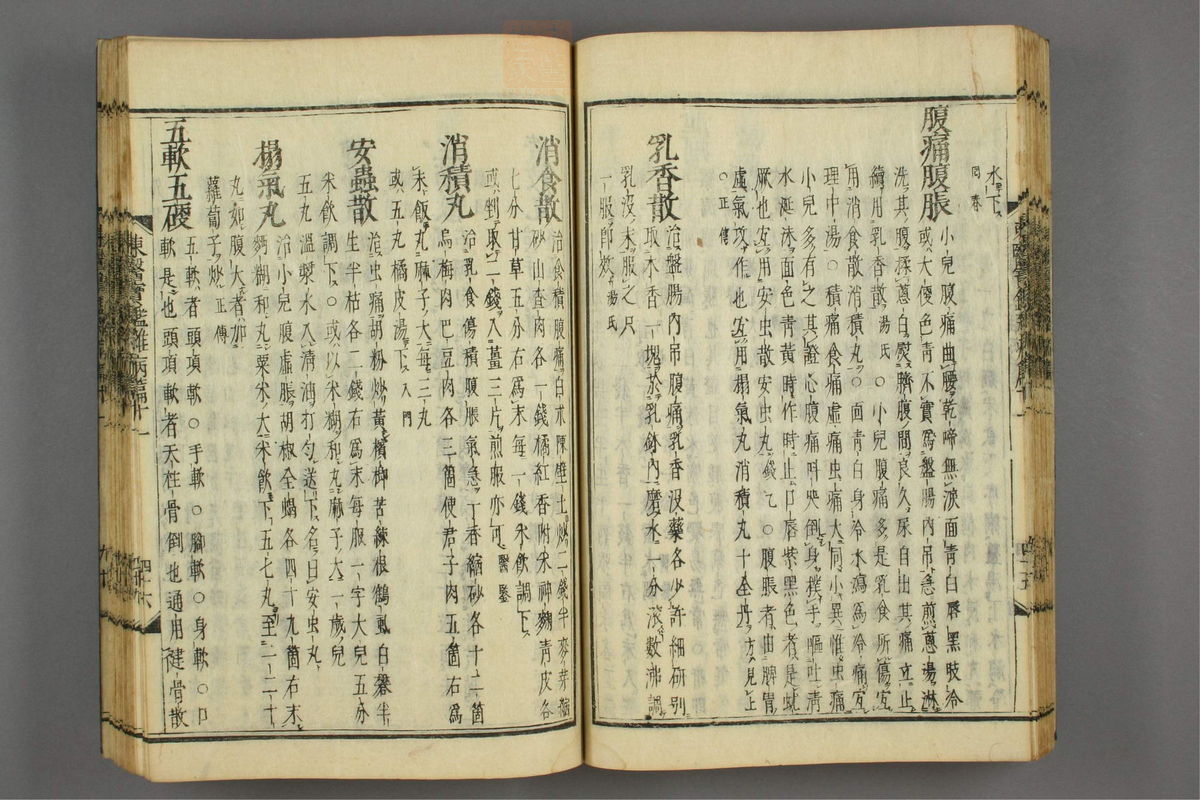 水下
同春
腹痛腹脹
小兒腹痛曲腰乾啼無淚面青白唇黑肢冷
或大便色青不實爲盤腸內吊急煎蔥湯淋
洗其腹揉蔥白熨臍腹間良久尿自出其痛立止
續用乳香散湯氏○小兒腹痛多是乳食所傷宜
用消食散消積丸○面青白身冷水瀉爲冷痛宜
理中湯○積痛食痛虛痛虫痛大同小異惟虫痛
小兒多有之其證心腹痛叫哭倒身撲手嘔吐清
水涎沫面色青黃時作時止口唇紫黑色者是蚘
厥也宜用安虫散安虫丸錢乙○腹脹者由脾胃
虛氣攻作也宜用搨氣丸消積丸十全丹方見上
○正傳
乳香散
治盤腸內吊腹痛乳香沒藥各少許細研別
取木香一塊於乳鉢內磨水一分滾數沸調
乳沒末服之只
一服卽效湯氏
消食散
治食積腹痛白朮陳壁土炒二錢半麥芽
砂山查肉各一錢橘紅香附米神麴青皮各
七分甘草五分右爲末每一錢米飮調下
或剉取一錢入薑三片煎服亦可醫鑒
消積丸
治乳食傷積腹脹氣急丁香縮砂各十二箇
烏梅肉巴豆肉各三箇使君子肉五箇右爲
末飯丸麻子大每三丸
或五丸橘皮湯下入門
安蟲散
治虫痛胡粉炒黃檳榔苦練根鶴虱白礬半
生半枯各二錢右爲末每服一字大兒五分
米飮調下○或以米糊和丸麻子大一歲兒
五丸溫漿水入淸油打勻送下名曰安虫丸
搨氣丸
治小兒腹虛脹胡椒全蝎各四十九箇右末
麪糊和丸粟米大米飮下五七丸至二三十
丸如腹大者加
蘿蔔子炒正傳
五軟五硬
五軟者頭項軟○手軟○脚軟○身軟○口
軟是也頭項軟者天柱骨倒也通用健骨散
東醫寶鑑雜病篇十一
四十六